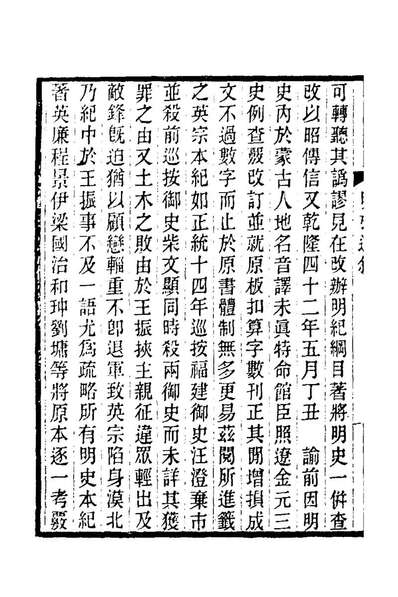 可轉聽其譌謬見在改辦明紀綱目著將明史一併查
改以昭傳信又乾隆四十二年五月丁丑　諭前因明
史內於蒙古人地名音譯未眞特命館臣照遼金元三
史例查覈改訂並就原板扣算字數刊正其閒增損成
文不過數字而止於原書體制無多更易茲閱所進籤
之英宗本紀如正統十四年巡按福建御史汪澄棄市
並殺前巡按御史柴文顯同時殺兩御史而未詳其獲
罪之由又土木之敗由於王振挾主親征違眾輕出及
敵鋒旣迫猶以顧戀輜重不卽退軍致英宗陷身漠北
乃紀中於王振事不及一語尤為疏略所有明史本紀
著英廉程景伊梁國治和珅劉墉等將原本逐一考覈